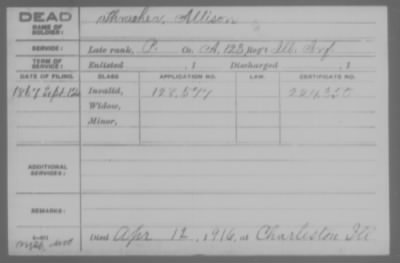 DEAD Thrasher, Allison
NAME OF SOLDIER:
SERVICE: Late rank, P. Co. A, 123 Reg't Ill. Inf.
TERM OF SERVICE: Enlisted , 1 Discharged , 1
DATE OF FILING. CLASS APPLICATION NO. LAW. CERTIFICATE NO.
1867 Sept. Invalid, 128,577 224350
Widow,
Minor,
ADDITIONAL SERVICES:
REMARKS:
Died Apr 12, 1916, at Charleston Ill